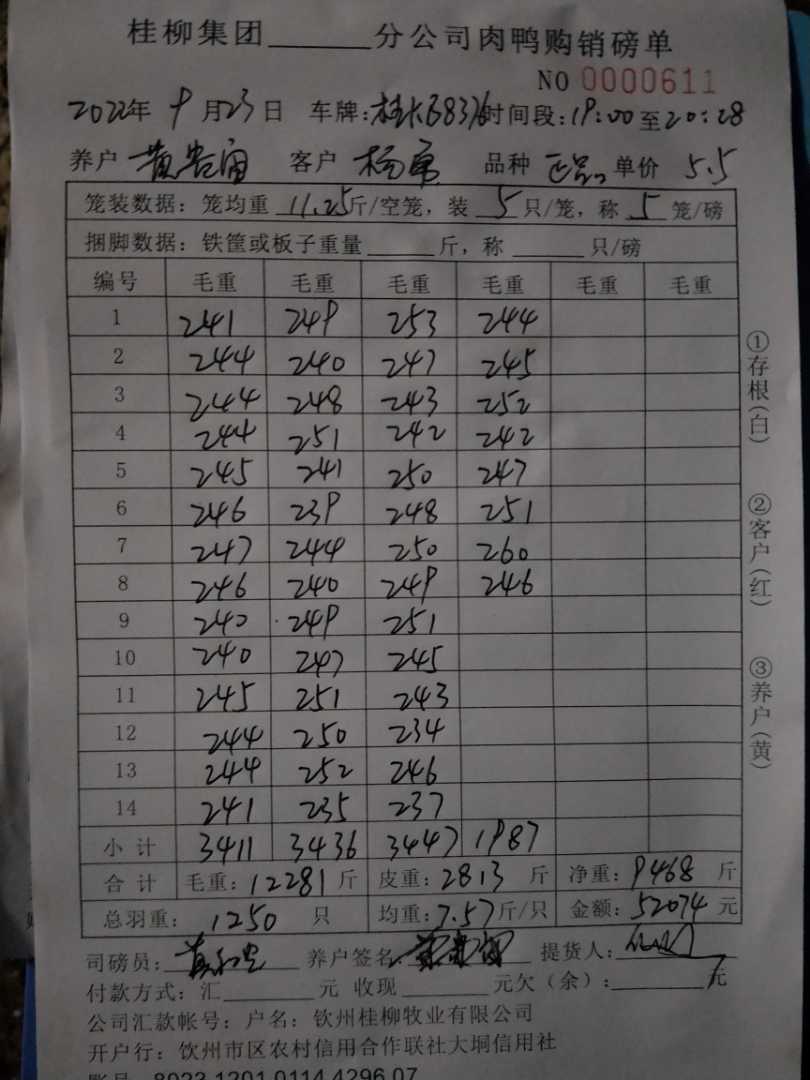 桂柳集团______分公司肉鸭购销磅单
NO 0000611
2022年 9 月23日 车牌: 时间段:19:00至20:28
养户 客户 杨 品种 正品 单价 5.5
笼装数据: 笼均重 11.25斤/空笼, 装 5 只/笼, 称 5 笼/磅
捆脚数据: 铁筐或板子重量______斤, 称______只/磅
编号 毛重 毛重 毛重 毛重 毛重 毛重
1 241 249 253 244
2 244 240 247 245
3 244 248 243 252
4 244 251 242 242
5 245 241 250 247
6 246 239 248 251
7 247 244 250 260
8 246 240 249 246
9 240 249 251
10 240 247 245
11 245 251 243
12 244 250 234
13 244 252 246
14 241 235 237
小计 3411 3436 3447 1987
合计 毛重:12281斤 皮重:2813 斤 净重:9468 斤
总羽重: 1250 只 均重:7.57斤/只 金额:52074 元
司磅员: 养户签名 提货人:
付款方式: 汇______元 收现______元欠(余):______元
公司汇款帐号: 户名: 钦州桂柳牧业有限公司
开户行: 钦州市区农村信用合作联社大垌信用社
账号 8023 1201 0114 4296 07
①存根(白)
②客户(红)
③养户(黄)